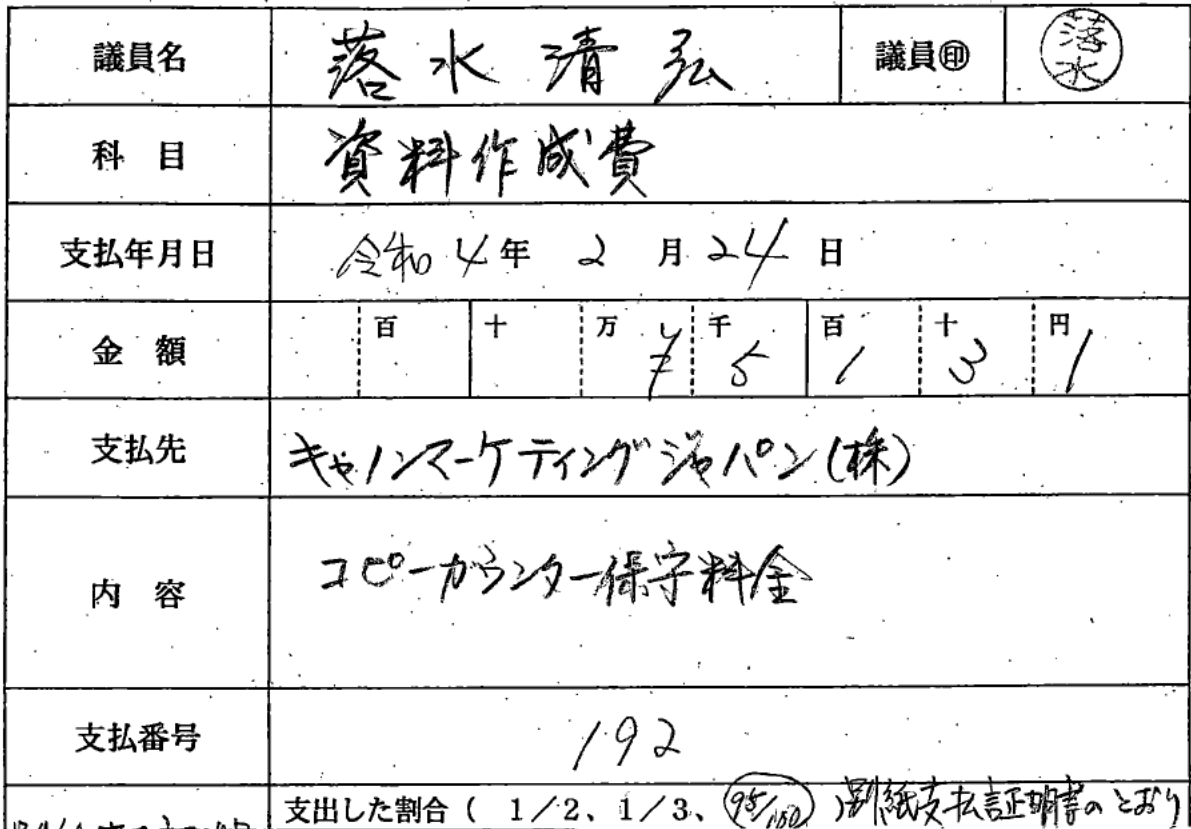 議員名 落水清弘 議員㊞ 落水
科 目 資料作成費
支払年月日 令和4年 2 月 24 日
金 額 百 十 万 ¥ 千 5 百 1 十 3 円 1
支払先 キャノンマーケティングジャパン(株)
内 容 コピーカウンター保守料金
支払番号 192
支出した割合( 1/2、1/3、95/100 )別紙支払証明書のとおり